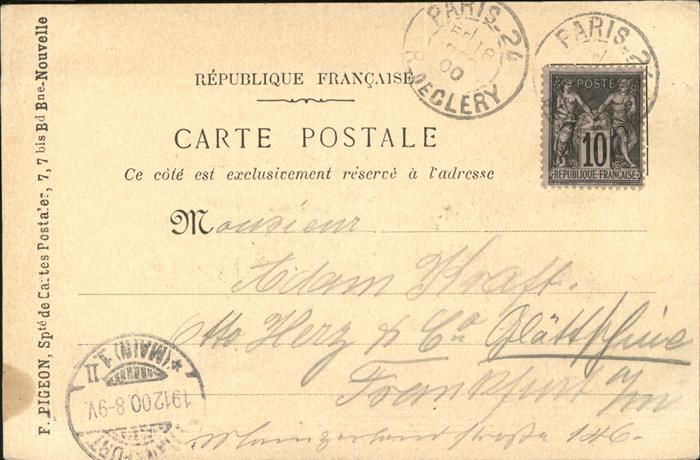 F. PIGEON, Spté de Cartes Postales, 7, 7 bis Bd Bne-Nouvelle
PARIS-24
R. DE CLERY
00
PARIS-24
RÉPUBLIQUE FRANÇAISE
POSTE
10
REPUBLIQUE-FRANÇAISE
CARTE POSTALE
Ce côté est exclusivement réservé à l'adresse
Monsieur
Adam Kratt.
Otto Herz & Co
Frankfurt a/m
Mainzerlandstraße 146.
FRANKFURT
(MAIN) 1.
19 12 00. 8-9V.